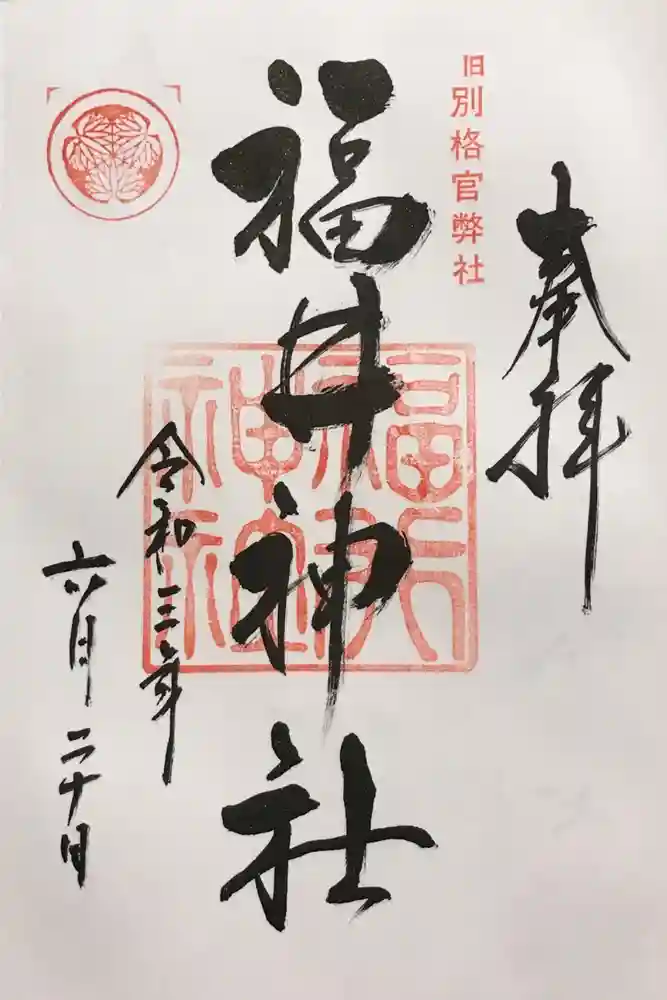 奉拝
旧別格官弊社
福井神社
令和三年
六月二十日